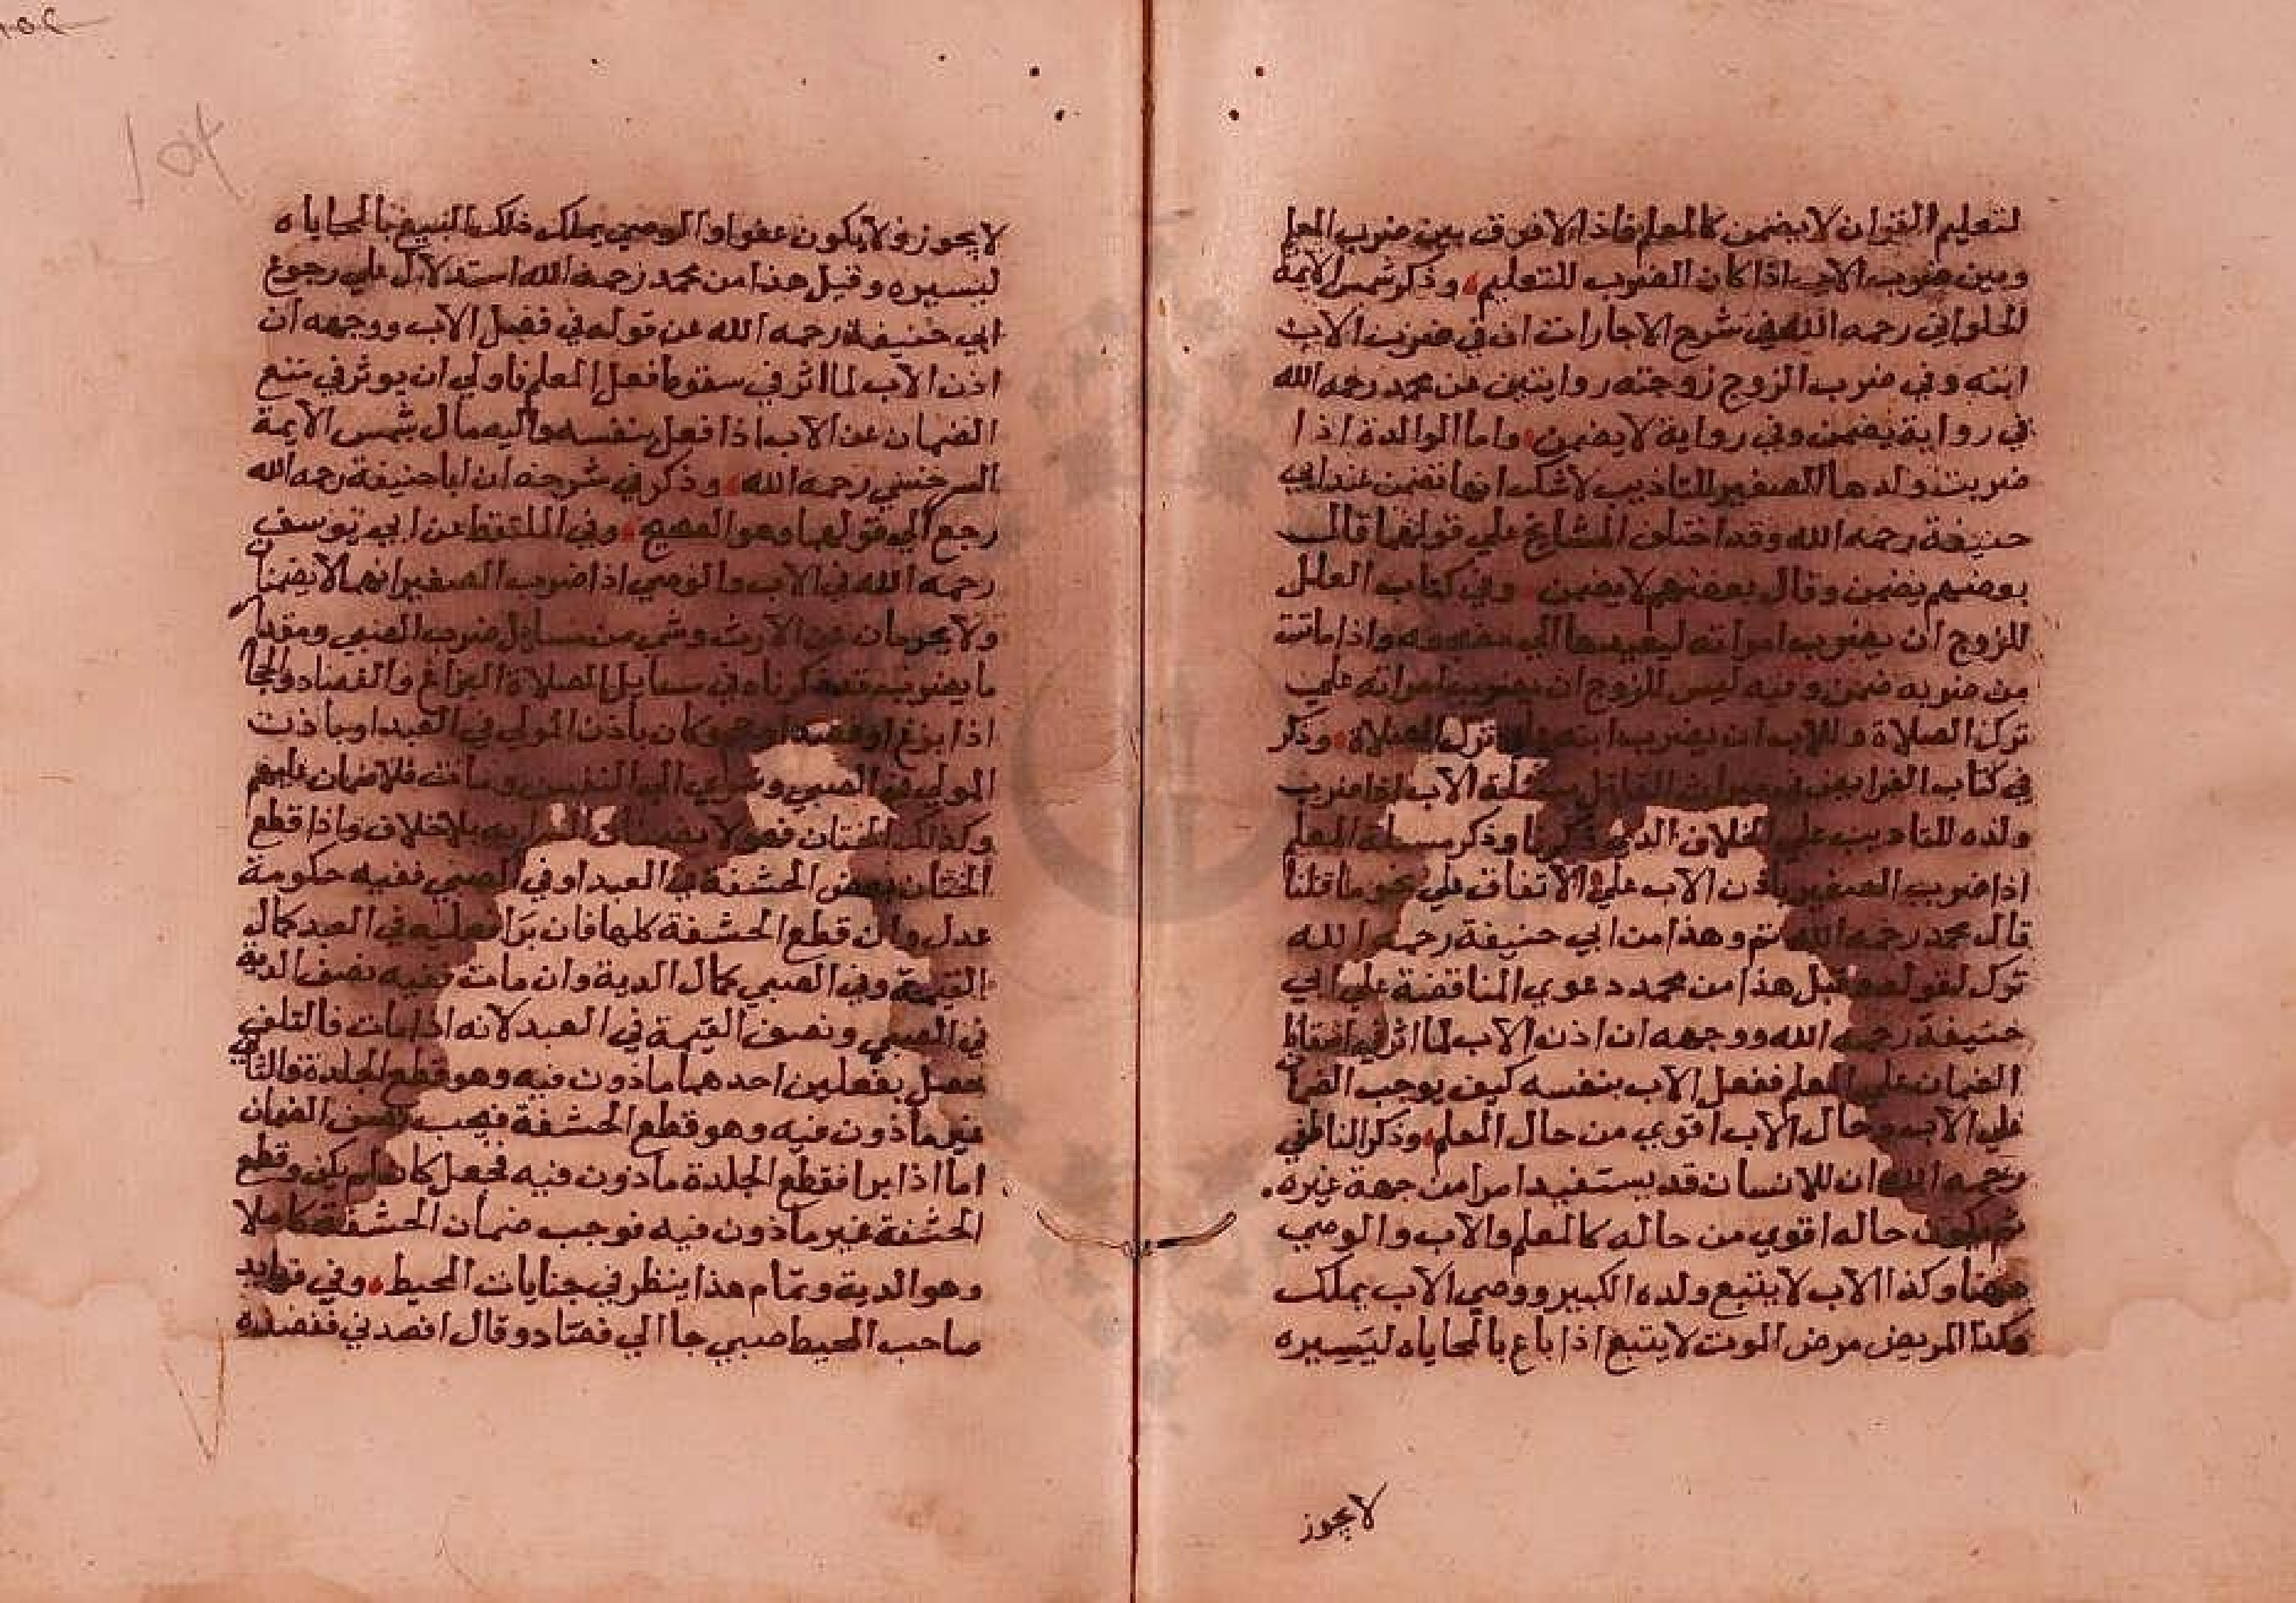 لتعليم القران لا يضمن كالمعلم فاذا لا فرق بين ضرب المعلم
وبين ضرب الاب اذا كان الضرب للتعليم وذكر شمس الايمة
الحلواني رحمه الله في شرح الاجارات ان في ضرب الاب
ابنه وفي ضرب الزوج زوجته روايتين عن محمد رحمه الله
في رواية يضمن وفي رواية لا يضمن واما الوالدة اذا
ضربت ولدها الصغير للتاديب لا شك انها تضمن عند ابي
حنيفة رحمه الله وقد اختلف المشايخ علي قولهما قال
بعضهم يضمن وقال بعضهم لا يضمن وفي كتاب العلل
للزوج ان يضرب امراته ليعيدها الي واذا ماتت
من ضربه ضمن وفيه ليس للزوج ان يضرب امراته علي
ترك الصلاة وللاب ان يضرب ابنه علي ترك الصلاة وذكر
في كتاب الفرايض في ميراث القاتل مسئلة الاب اذا ضرب
ولده للتاديب علي الخلاف الذي ذكرنا وذكر مسئلة المعلم
اذا ضرب الصغير باذن الاب علي الاتفاق علي نحو ما قلنا
قال محمد رحمه الله ثم وهذا من ابي حنيفة رحمه الله
ترك لقوله وقيل هذا من محمد دعوي المناقضة علي ابي
حنيفة رحمه الله ووجهه ان اذن الاب لما اثر في اسقاط
الضمان علي المعلم ففعل الاب بنفسه كيف يوجب الضمان
علي الاب وحال الاب اقوي من حال المعلم وذكر الناطفي
رحمه الله ان للانسان قد يستفيد امرا من جهة غيره
ثم يكون حاله اقوي من حاله كالمعلم والاب والوصي
وكذا الاب لا يتبع ولده الكبير ووصي الاب يملك
وكذا المريض مرض الموت لا يتبع اذا باع بالمحاياه ليسيره
لا يجوز
لا يجوز ولا يكون عفوا والوصي يملك ذلك بالمحاياه
ليسيره وقيل هذا من محمد رحمه الله استدلال علي رجوع
ابي حنيفة رحمه الله عن قوله في فصل الاب ووجهه ان
اذن الاب لما اثر في سقوط فعل المعلم فاولي ان يوثر في منع
الضمان عن الاب اذا فعل بنفسه واليه مال شمس الايمة
السرخسي رحمه الله وذكر في شرحه ان ابا حنيفة رحمه الله
رجع الي قولهما وهو الصحيح وفي الملتقط عن ابي يوسف
رحمه الله في الاب والوصي اذا ضرب الصغير انهما لا يضمنان
ولا يحرمان عن الارث وشي من مسايل ضرب الصبي ومقدار
ما يضرب قد ذكرناه في مسايل الصلاة البزاغ والفصاد والحجام
اذا بزغ او فصد او حجم وكان باذن المولي في العبد او باذن
المولي في الصبي وسري الي النفس ومات فلا ضمان عليهم
وكذلك الختان فهو لا يضمنان السراية بلا خلاف واذا قطع
الختان بعض الحشفة في العبد او في الصبي ففيه حكومة
عدل وان قطع الحشفة كلها فان برا فعليه في العبد كمال
القيمة وفي الصبي كمال الدية وان مات ففيه نصف الدية
في الصبي ونصف القيمة في العبد لانه اذا مات فالتلف
حصل بفعلين احدهما ماذون فيه وهو قطع الجلدة والثاني
غير ماذون فيه وهو قطع الحشفة فيجب نصف الضمان
اما اذا برا فقطع الجلدة ماذون فيه فجعل كان لم يكن وقطع
الحشفة غير ماذون فيه فوجب ضمان الحشفة كاملا
وهو الدية وتمام هذا ينظر في جنايات المحيط وفي فوايد
صاحب المحيط صبي جا الي فصاد وقال افصدني ففصده